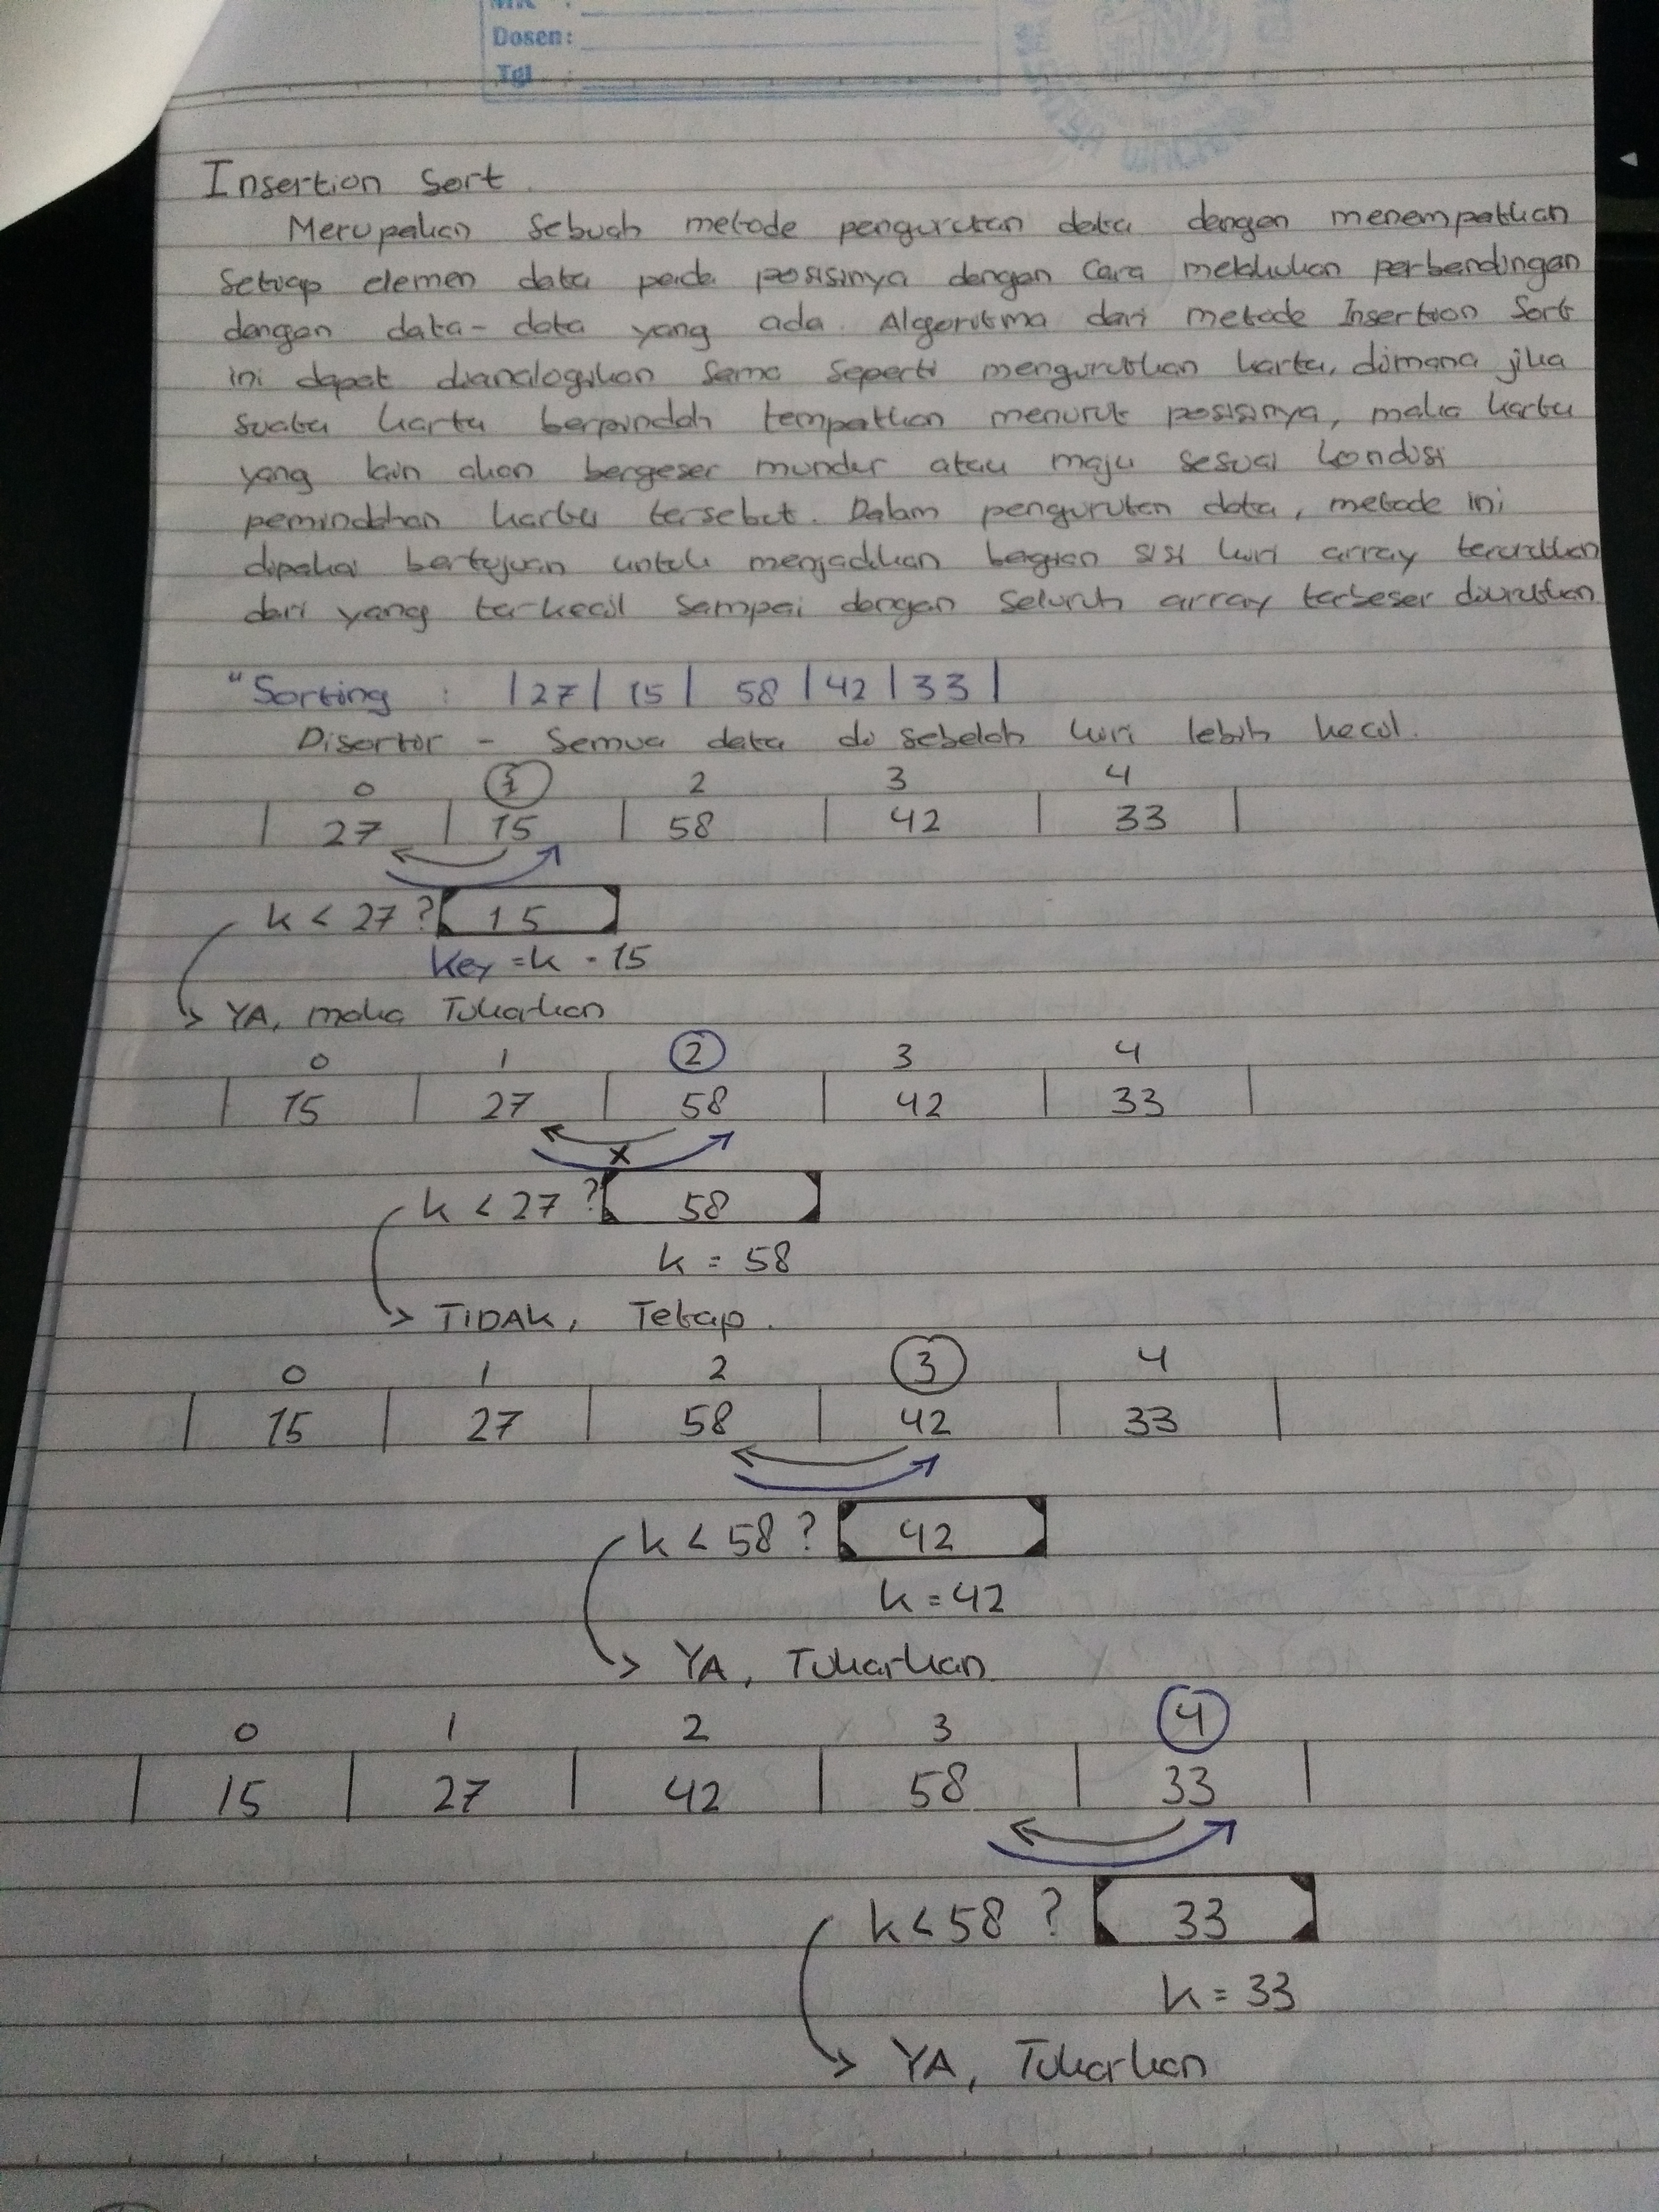 MK :
Dosen:
Tgl :
Insertion Sort.
Merupakan sebuah metode pengurutan data dengan menempatkan
setiap elemen data pada posisinya dengan cara melakukan perbandingan
dengan data-data yang ada. Algoritma dari metode Insertion Sort
ini dapat dianalogikan sama seperti mengurutkan kartu, dimana jika
suatu kartu berpindah tempatkan menurut posisinya, maka kartu
yang lain akan bergeser mundur atau maju sesuai kondisi
pemindahan kartu tersebut. Dalam pengurutan data, metode ini
dipakai bertujuan untuk menjadikan bagian sisi kiri array terurutkan
dari yang terkecil sampai dengan seluruh array terbesar diurutkan
"Sorting : | 27 | 15 | 58 | 42 | 33 |
Disortir - Semua data di sebelah kiri lebih kecil.
0 1 2 3 4
| 27 | 15 | 58 | 42 | 33 |
k < 27 ? 15
Key = k = 15
YA, maka Tukarkan
0 1 2 3 4
| 15 | 27 | 58 | 42 | 33 |
x
k < 27 ? 58
k = 58
TIDAK, Tetap.
0 1 2 3 4
| 15 | 27 | 58 | 42 | 33 |
k < 58 ? 42
k = 42
YA, Tukarkan
0 1 2 3 4
| 15 | 27 | 42 | 58 | 33 |
k < 58 ? 33
k = 33
YA, Tukarkan